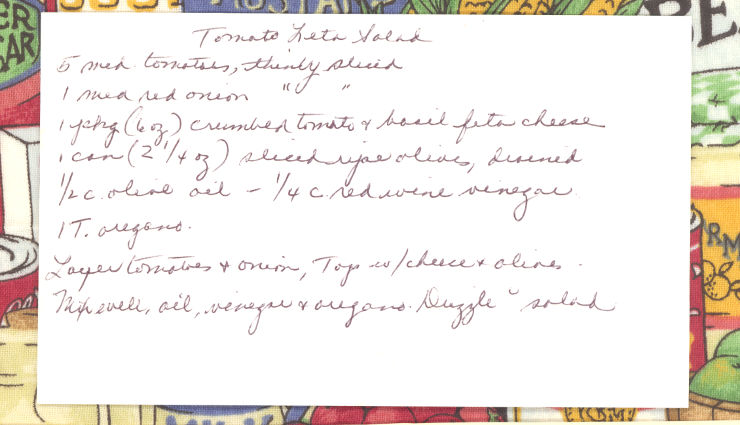 Tomato Feta Salad
5 med. tomatoes, thinly sliced
1 med red onion " "
1 pkg (6 oz) crumbled tomato & basil feta cheese
1 can (2 1/4 oz) sliced ripe olives, drained
1/2 c. olive oil - 1/4 c. red wine vinegar
1 T. oregano.
Layer tomatoes & onion, Top w/cheese & olives.
Mix well, oil, vinegar & oregano. Drizzle salad
MUSTARD